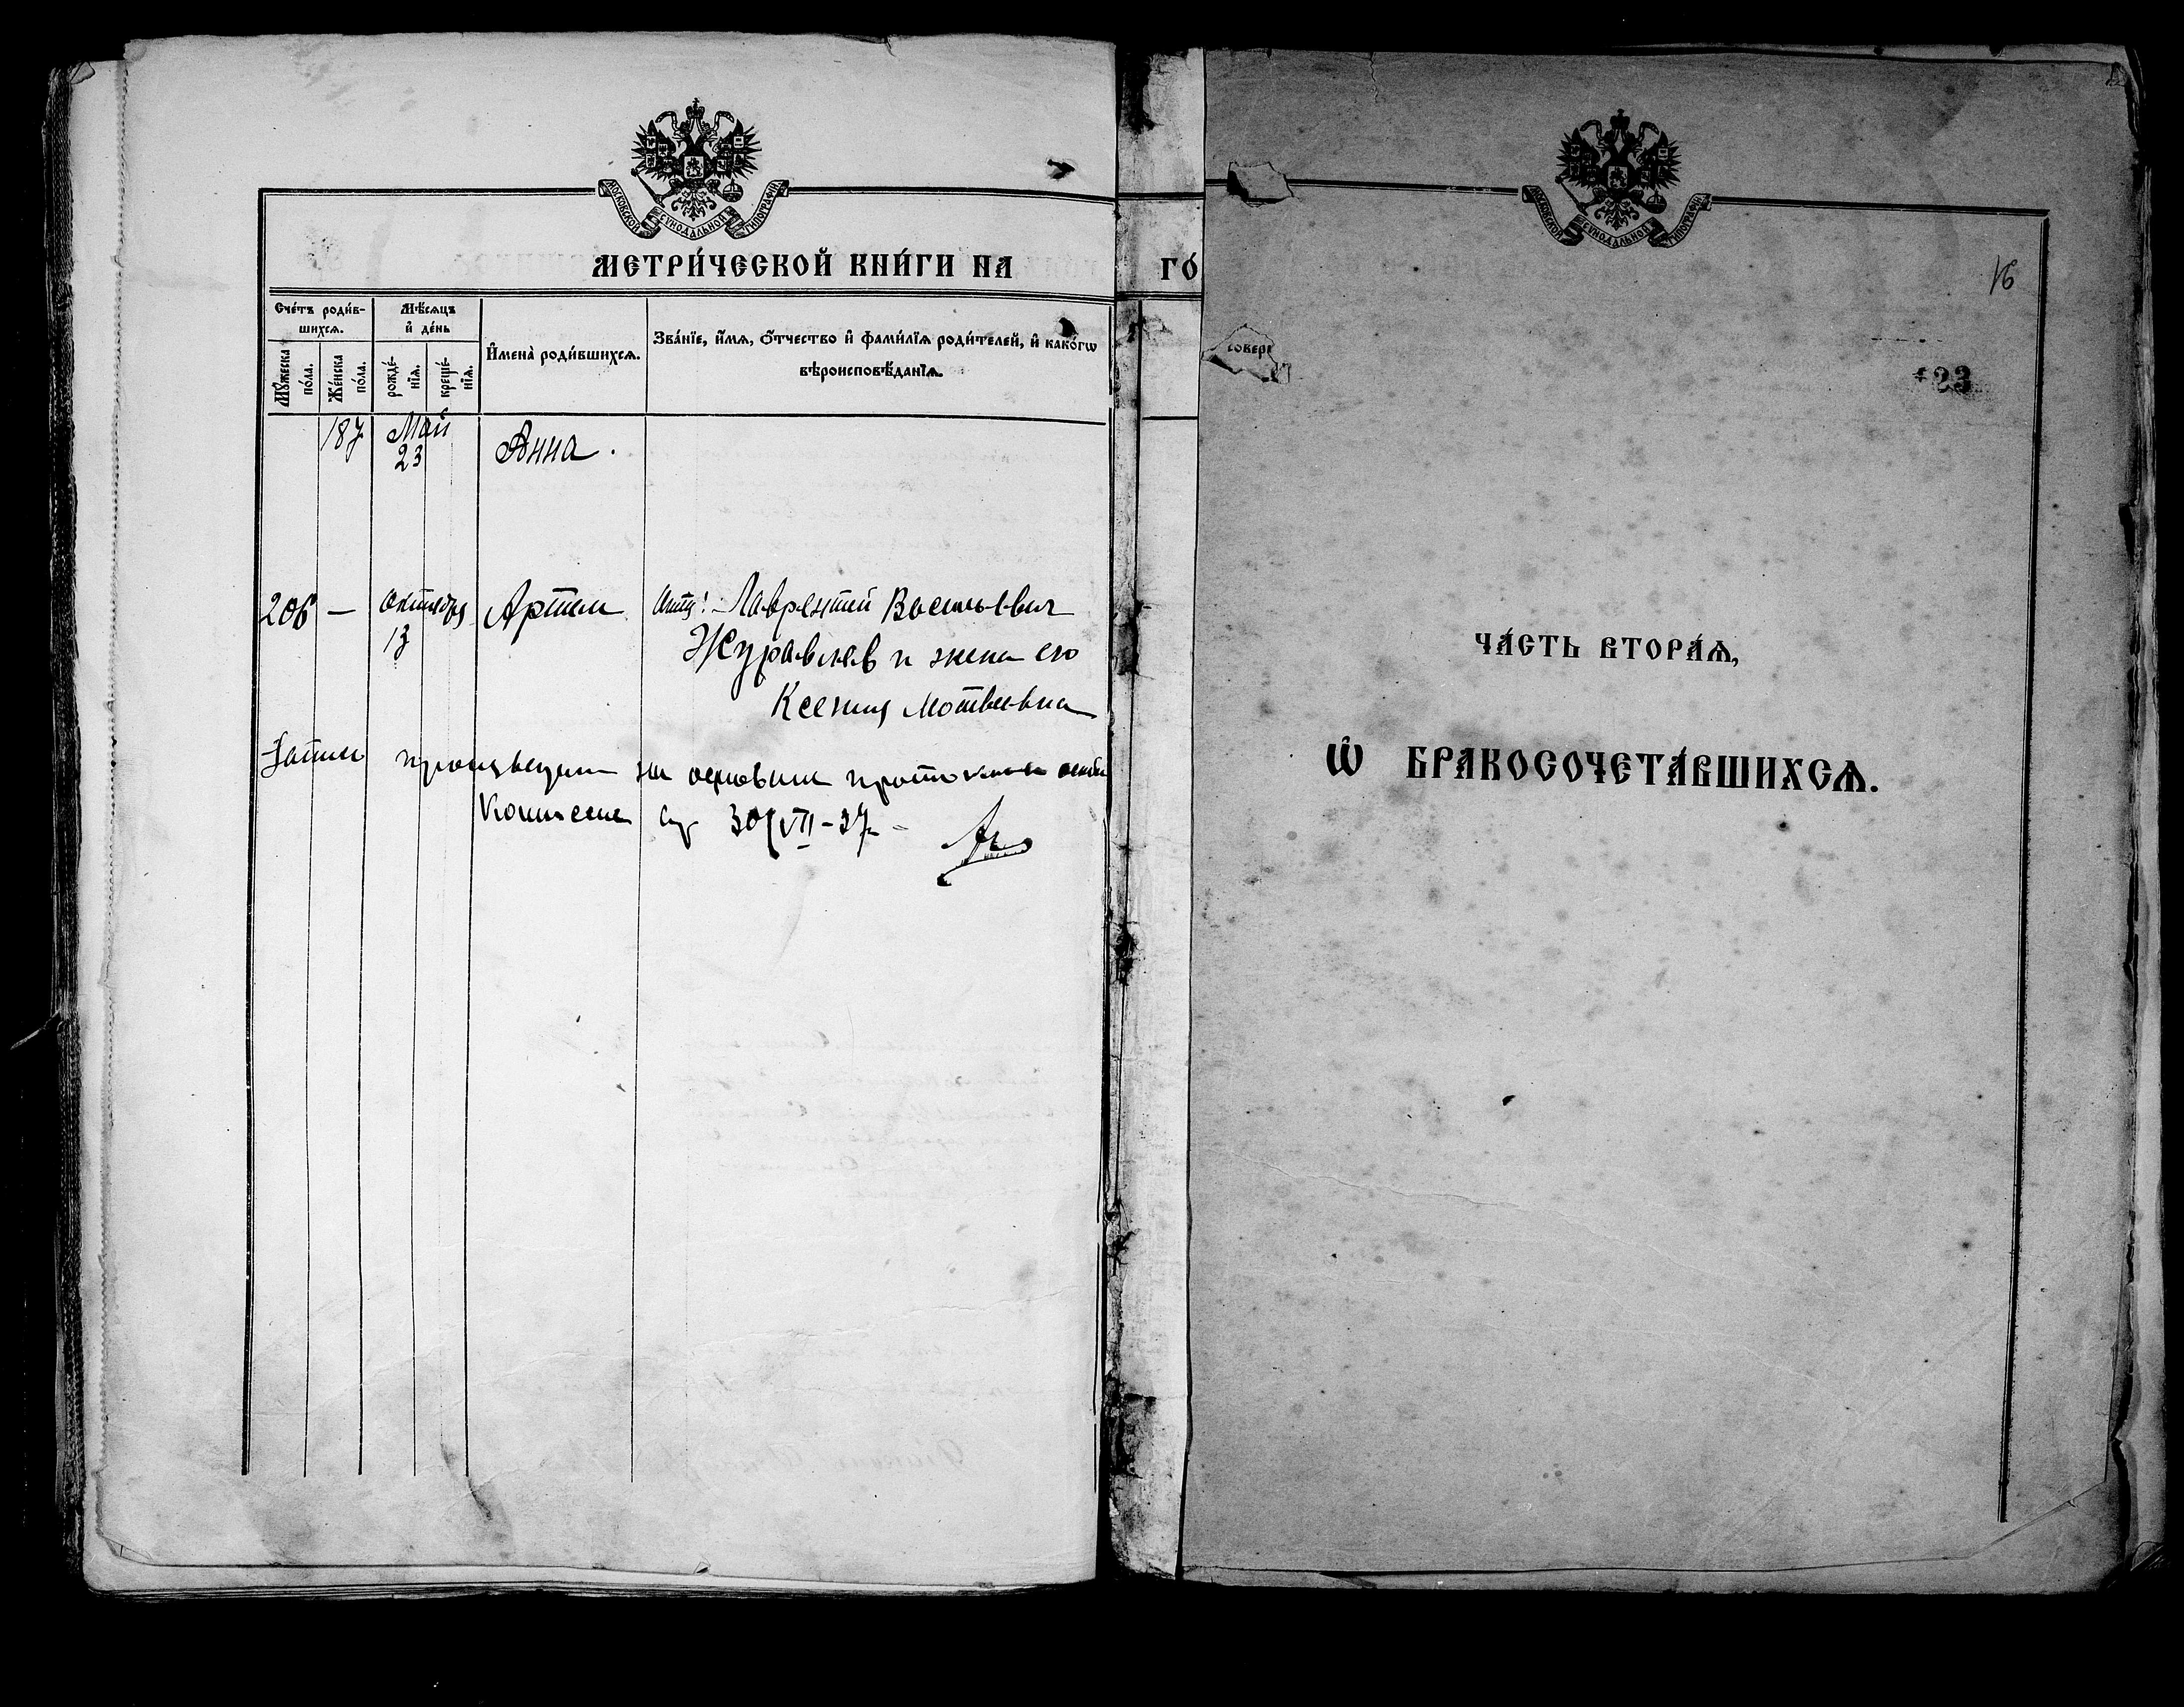 МОСКОВСКОЙ СѴНОДАЛЬНОЙ ТИПОГРАФІИ
МЕТРИ́ЧЕСКОЙ КНИ́ГИ НА
Сче́тъ роди́в-
шихсѧ.
Мꙋ́жеска по́ла.
Же́нска по́ла.
Мѣ́сѧцъ
и҆ де́нь
рожде́-
нїѧ.
креще́-
нїѧ.
И҆мена̀ роди́вшихсѧ.
Зва́нїе, и҆́мѧ, ѻ҆́тчество и҆ фами́лїѧ роди́телей, и҆ како́гѡ
вѣроисповѣ́данїѧ.
187 Май Анна.
23
206 — октября Артем Отец: Лаврентий Васильевич
13 Журавлев и жена его
Ксения Матвеевна
Запись произведена на основании протокола
Комиссии 30/VII-37
ГО́
МОСКОВСКОЙ СѴНОДАЛЬНОЙ ТИПОГРАФІИ
16
совер
123
ЧА́СТЬ ВТОРА́Ѧ,
Ѡ҆ БРАКОСОЧЕТА́ВШИХСѦ.